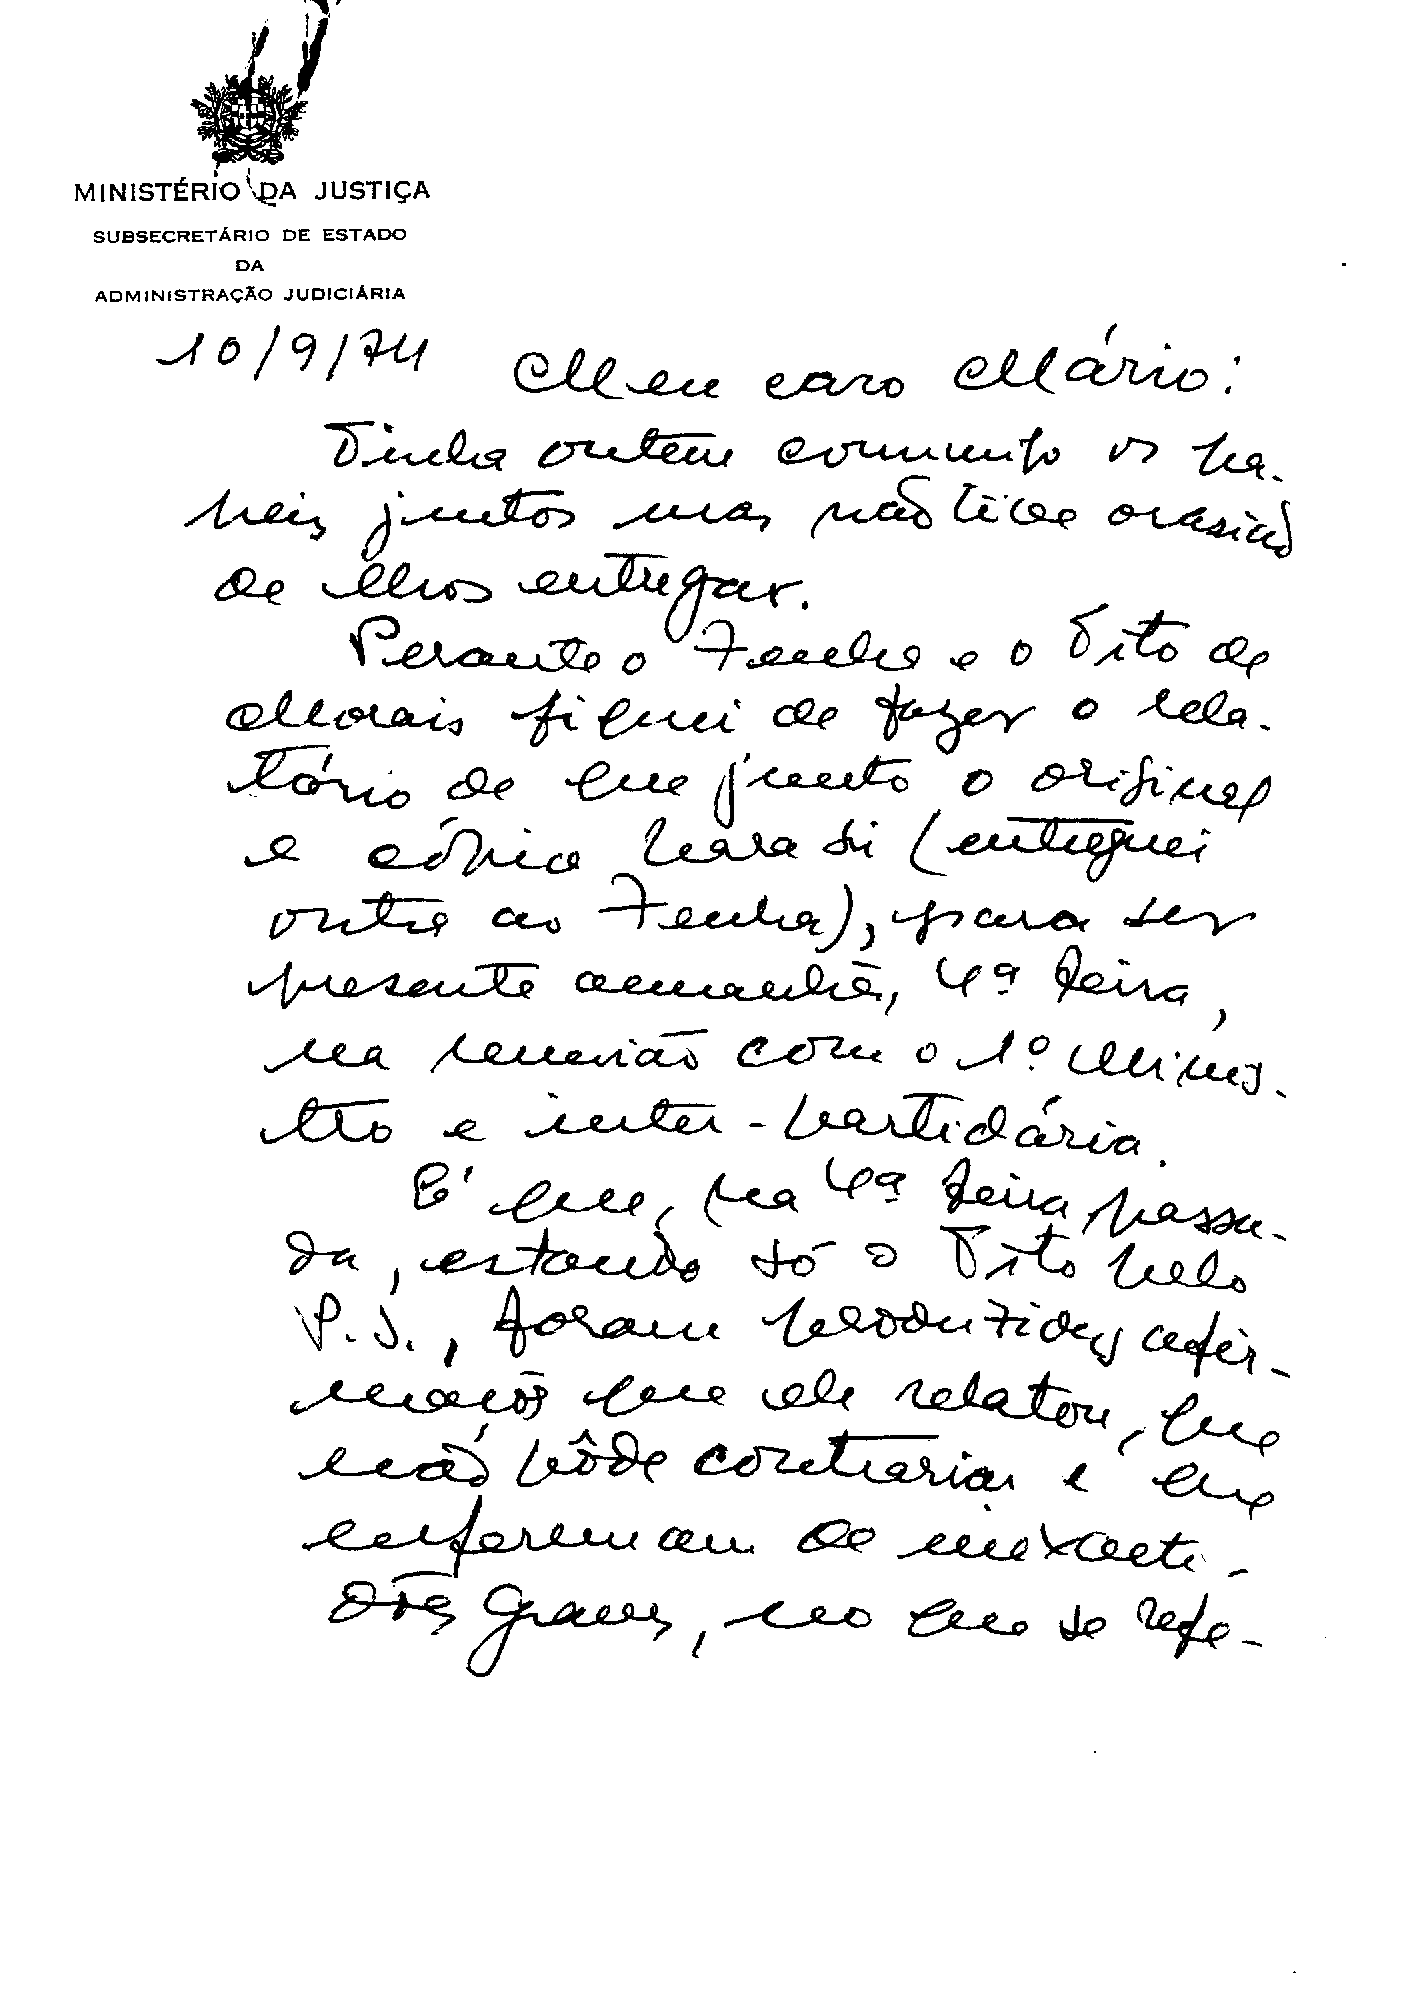 MINISTÉRIO DA JUSTIÇA
SUBSECRETÁRIO DE ESTADO
DA
ADMINISTRAÇÃO JUDICIÁRIA
10/9/74 Meu caro Mário:
Tinha ontem comigo os pa-
peis juntos mas não tive ocasião
de lhos entregar.
Perante o Zenha e o Tito de
Morais fiquei de fazer o rela-
tório de que junto o original
e cópia para si (entreguei
outra ao Zenha), para ser
presente amanhã, 4ª feira,
na reunião com o 1º Minis-
tro e inter-partidária.
É que, na 4ª feira passa-
da, estando só o Tito pelo
P.S., foram produzidas afir-
mações que ele relatou, que
não pôde contrariar e que
enfermam de inexacti-
dões graves, no que se refe-